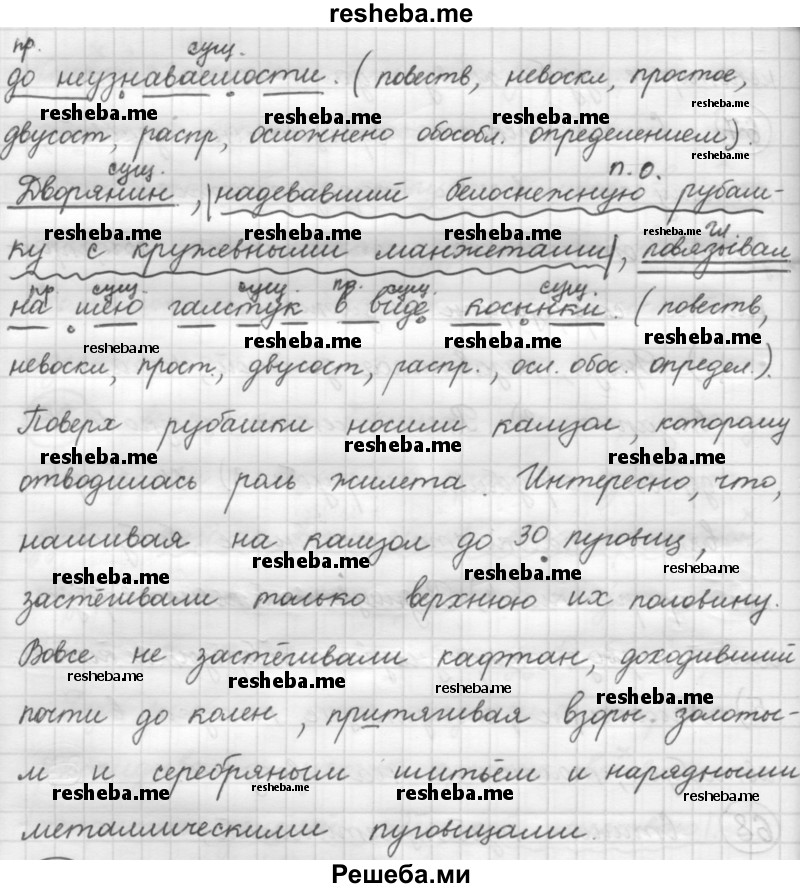 resheba.me
пр. сущ.
до неузнаваемости. (повеств, невоскл, простое,
resheba.me resheba.me resheba.me resheba.me
двусост, распр, осложнено обособл. определением).
resheba.me
сущ. п.о.
Дворянин, |надевавший белоснежную рубаш-
resheba.me resheba.me resheba.me resheba.me
гл.
ку с кружевными манжетами|, повязывал
пр. сущ. сущ. пр. сущ. сущ.
на шею галстук в виде косынки. (повеств,
resheba.me resheba.me resheba.me resheba.me
невоскл, прост, двусост, распр., осл. обос. определ.).
Поверх рубашки носили камзол, которому
resheba.me resheba.me resheba.me
отводилась роль жилета. Интересно, что,
нашивая на камзол до 30 пуговиц,
resheba.me resheba.me resheba.me
застёгивали только верхнюю их половину.
Вовсе не застёгивали кафтан, доходивший
resheba.me resheba.me resheba.me resheba.me
почти до колен, притягивая взоры золоты-
м и серебряным шитьём и нарядными
resheba.me resheba.me resheba.me resheba.me
металлическими пуговицами.
Решеба.ми